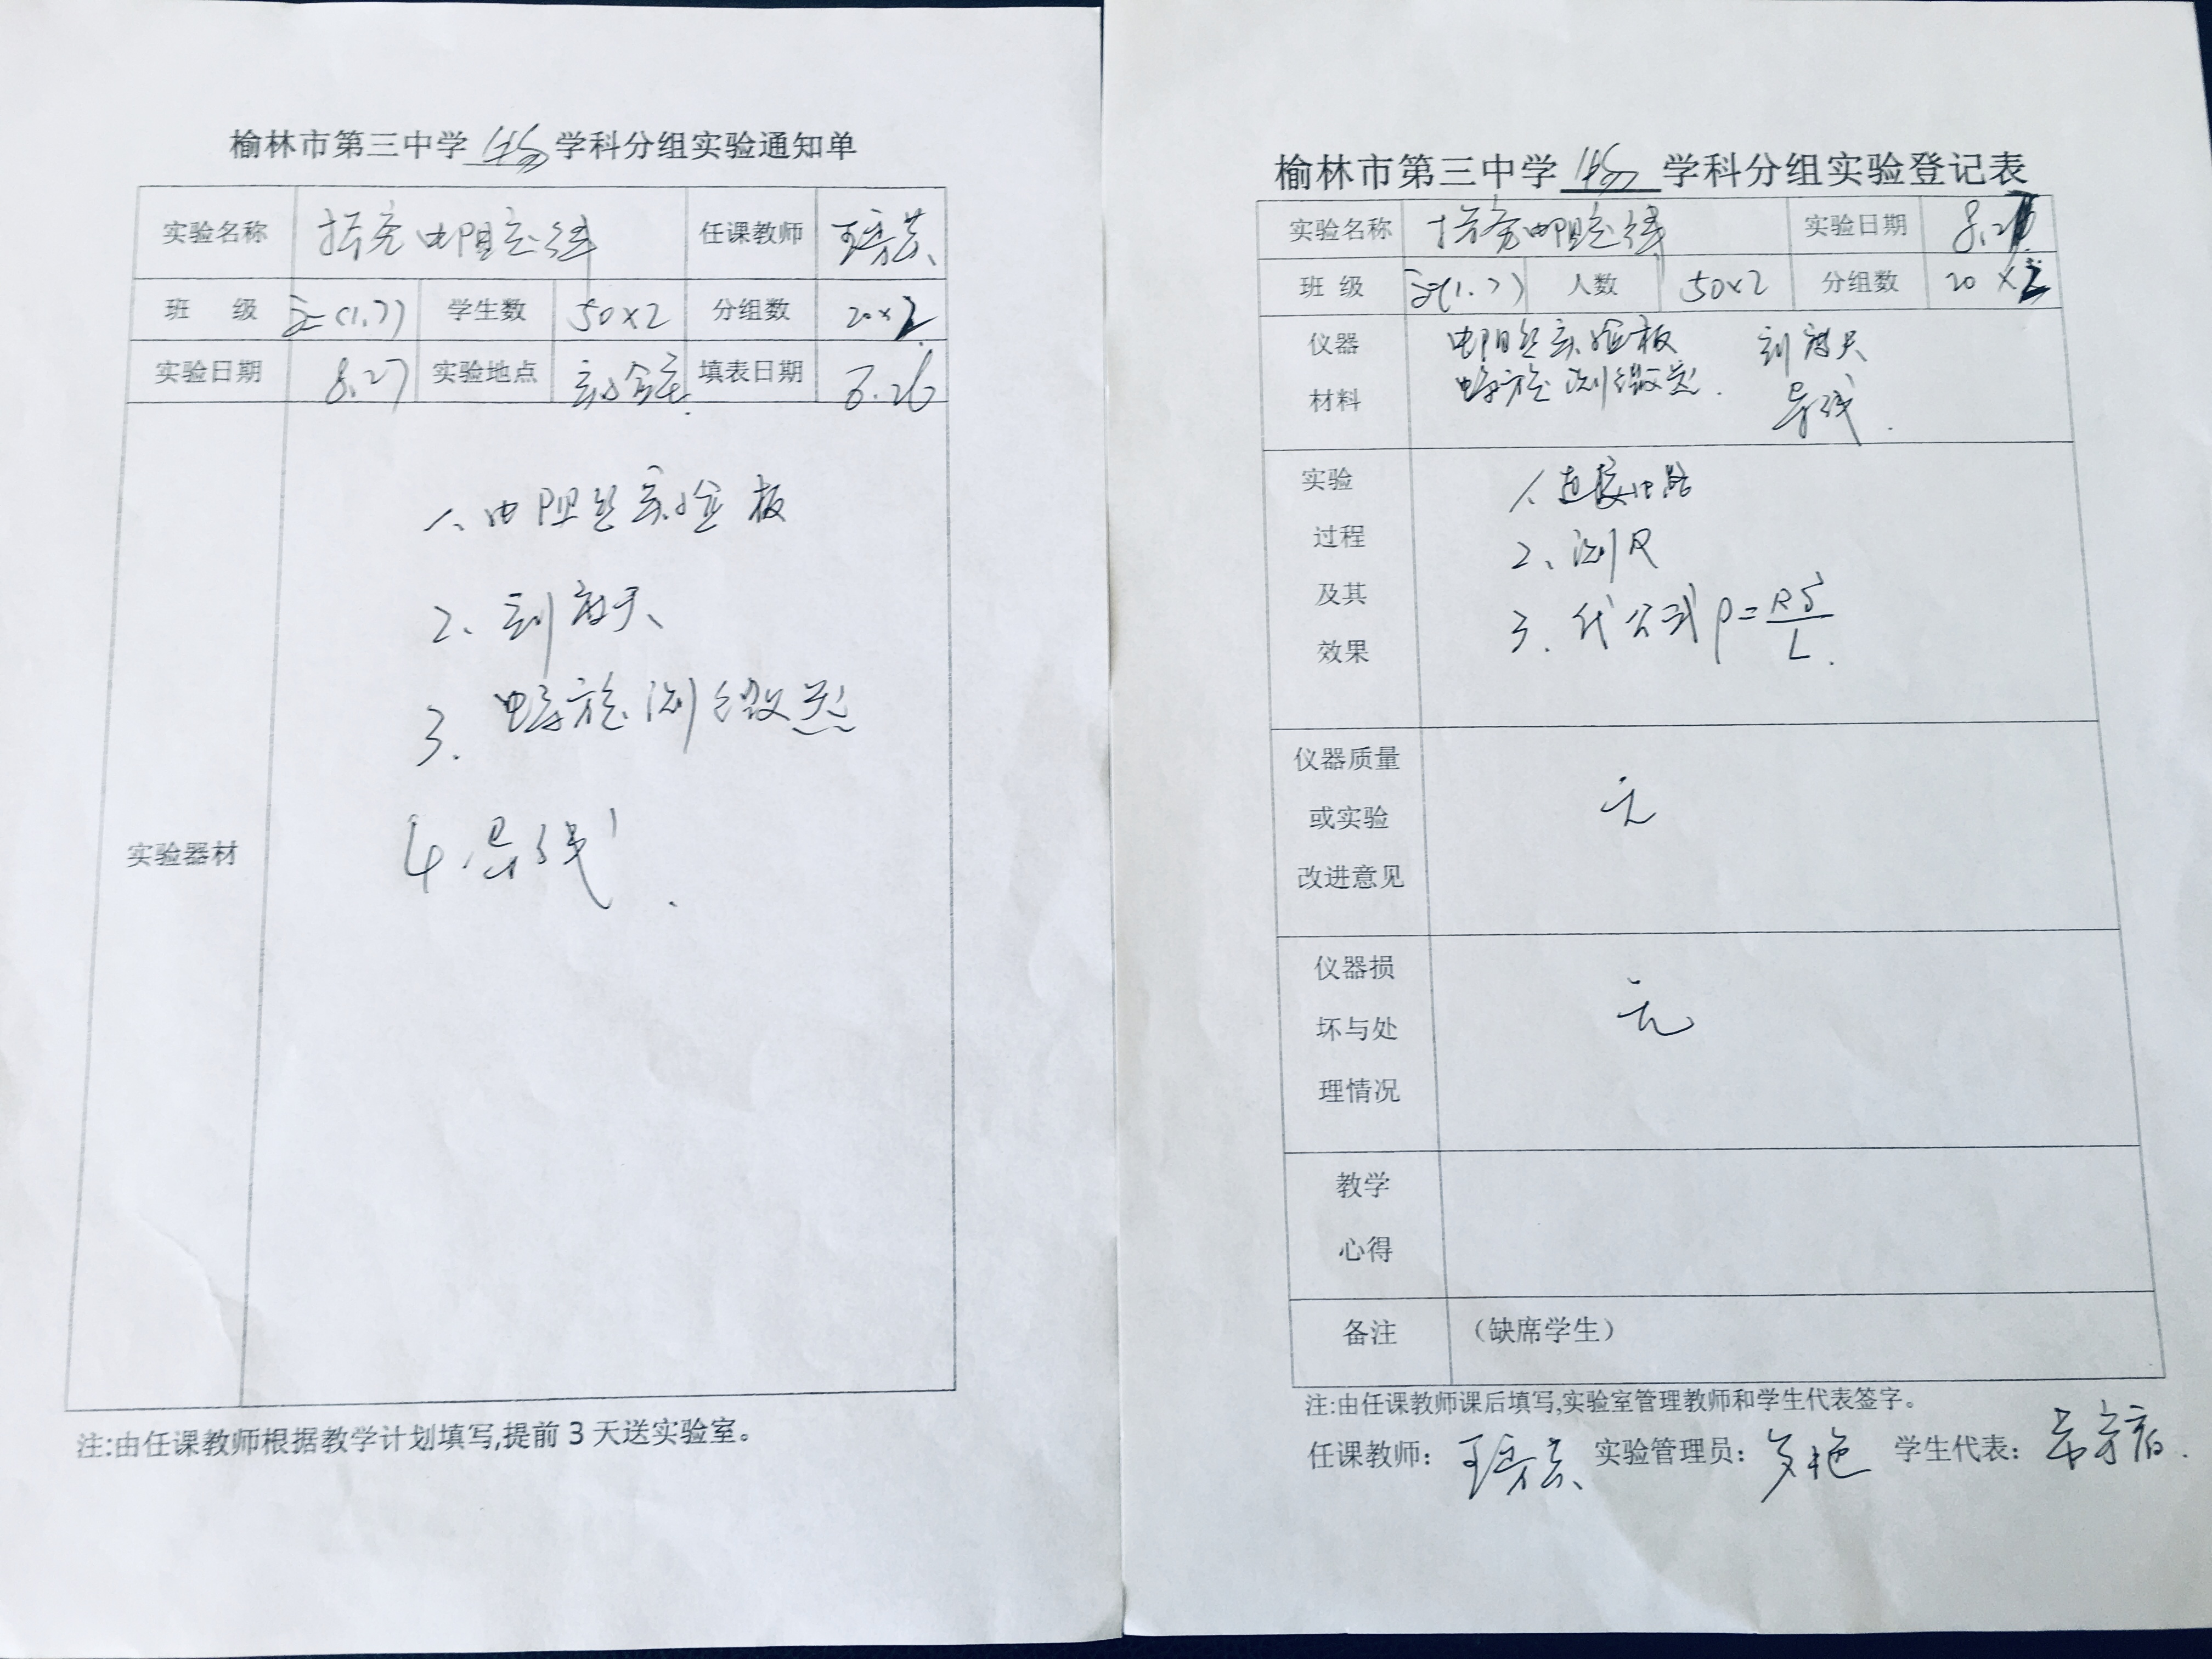 榆林市第三中学 物 学科分组实验通知单
实验名称 探究电阻定律 任课教师
班 级 高二(1.7) 学生数 50×2 分组数 20×2
实验日期 8.27 实验地点 实验室 填表日期 8.26
实验器材
1、电阻丝实验板
2、刻度尺
3. 螺旋测微器
4. 导线
注:由任课教师根据教学计划填写,提前 3 天送实验室。
榆林市第三中学 物 学科分组实验登记表
实验名称 探究电阻定律 实验日期
班 级 高二(1.7) 人数 50×2 分组数 20×2
仪器材料 电阻丝实验板 刻度尺
螺旋测微器. 导线.
实验过程及其效果
1、连接电路
2、测R
3. 代公式 ρ=RS/L.
仪器质量或实验改进意见 无
仪器损坏与处理情况 无
教学心得
备注 (缺席学生)
注:由任课教师课后填写,实验室管理教师和学生代表签字。
任课教师: 实验管理员: 学生代表: